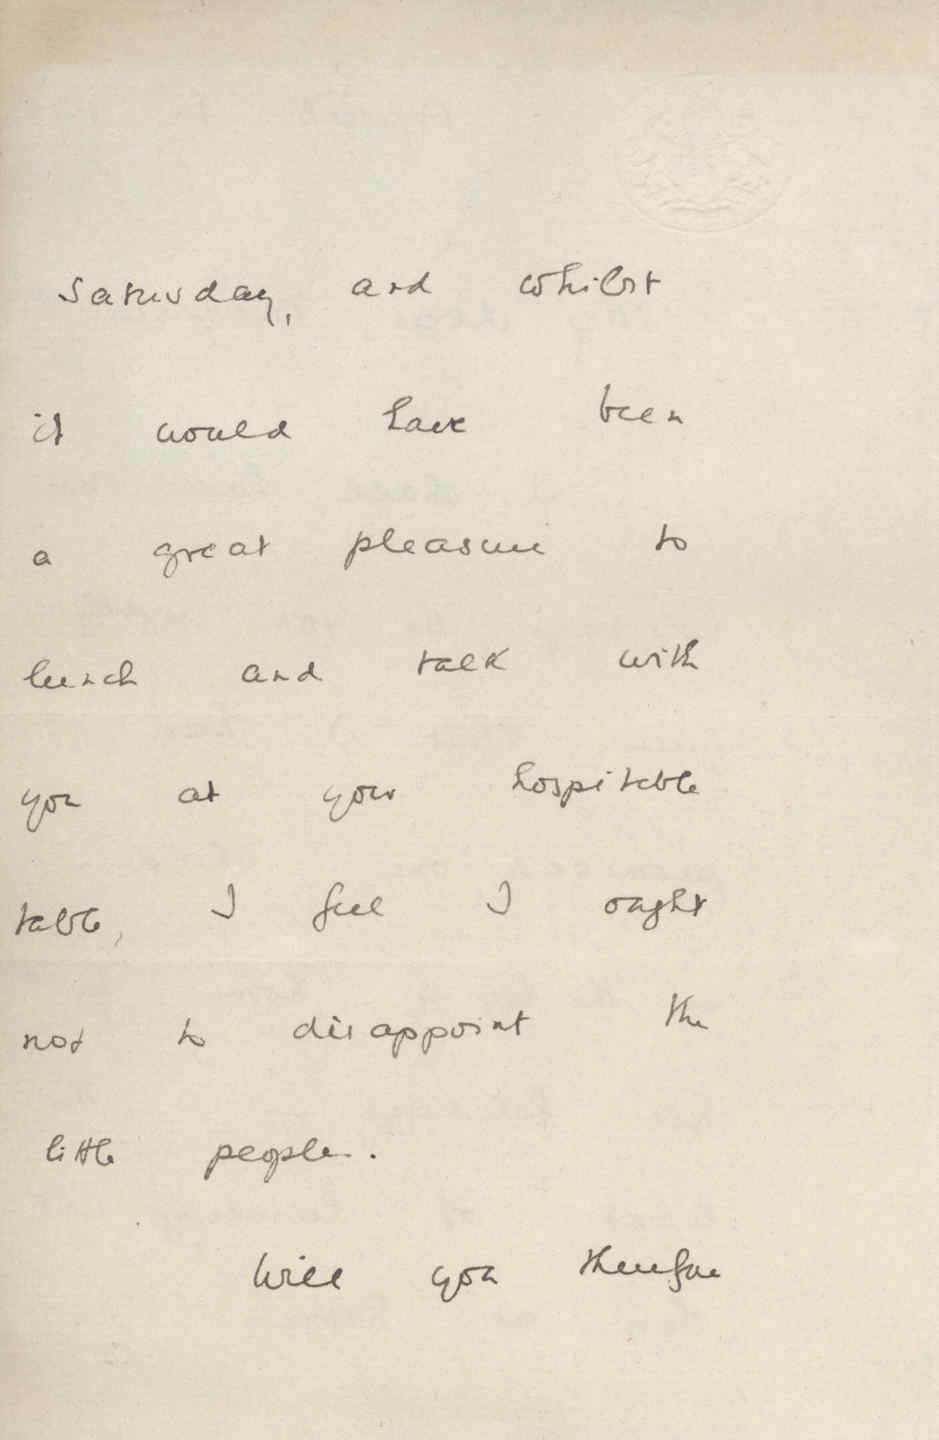 Saturday, and whilst
it would have been
a great pleasure to
lunch and talk with
you at your hospitable
table, I feel I ought
not to disappoint the
little people.
Will you therefore